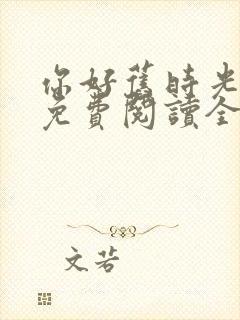 你好舊時光
免費閱讀全
文若